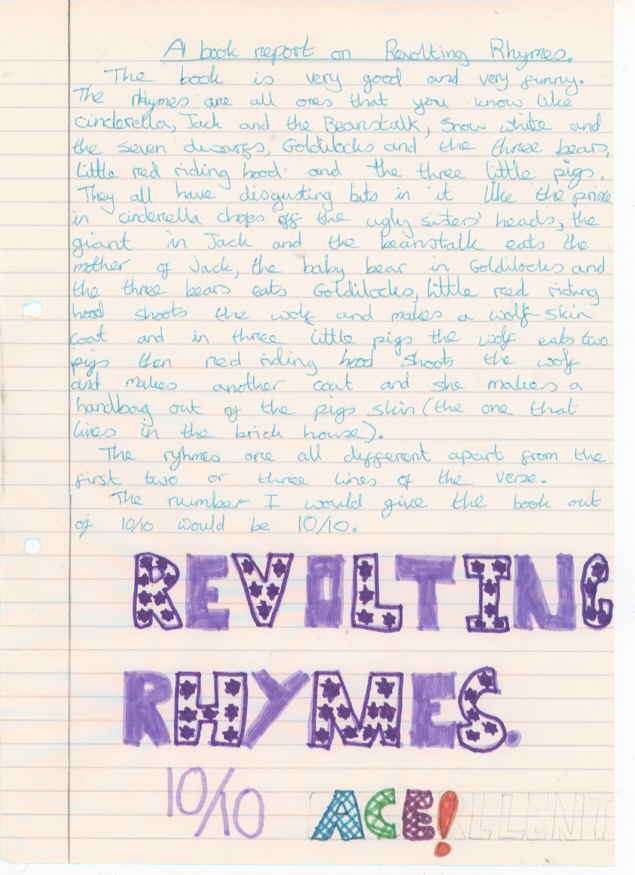 A book report on Revolting Rhymes.
The book is very good and very funny.
The rhymes are all ones that you know like
cinderella, Jack and the Beanstalk, Snow white and
the seven dwarfs, Goldilocks and the three bears,
Little red riding hood and the three little pigs.
They all have disgusting bits in it like the prince
in cinderella chops off the ugly sisters' heads, the
giant in Jack and the beanstalk eats the
mother of Jack, the baby bear in Goldilocks and
the three bears eats Goldilocks, Little red riding
hood shoots the wolf and makes a wolf-skin
coat and in three little pigs the wolf eats two
pigs then red riding hood shoots the wolf
and makes another coat and she makes a
handbag out of the pigs skin (the one that
lives in the brick house).
The ryhmes are all different apart from the
first two or three lines of the verse.
The number I would give the book out
of 10/10 would be 10/10.
REVOLTING
RHYMES.
10/10 ACE! LLENT